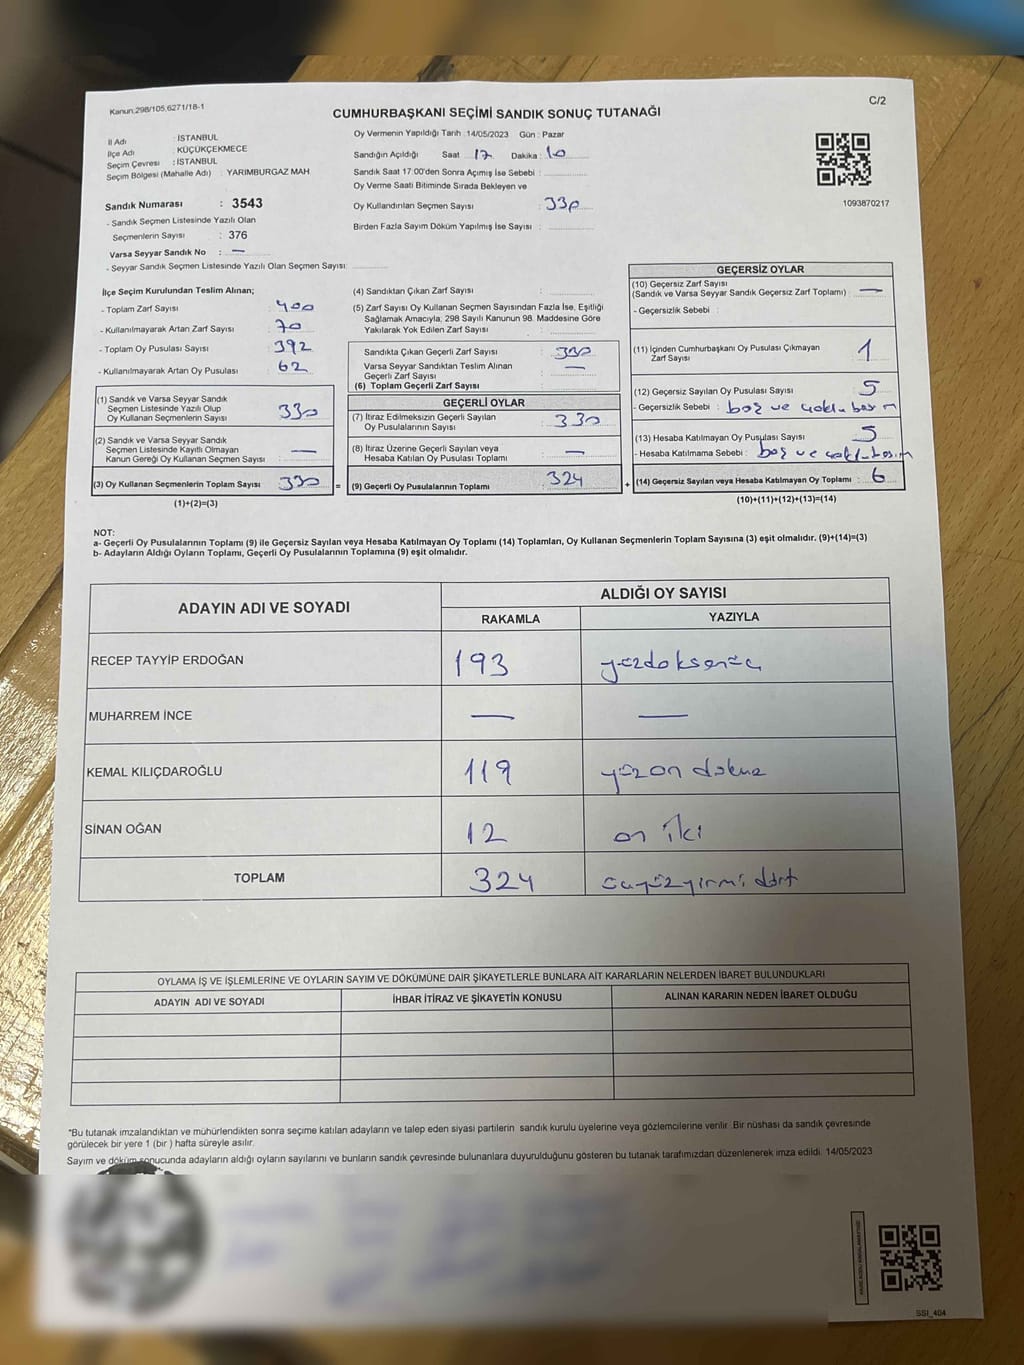 Kanun.298/105.6271/18-1
C/2
CUMHURBAŞKANI SEÇİMİ SANDIK SONUÇ TUTANAĞI
İl Adı : İSTANBUL
İlçe Adı : KÜÇÜKÇEKMECE
Seçim Çevresi : İSTANBUL
Seçim Bölgesi (Mahalle Adı) : YARIMBURGAZ MAH
Sandık Numarası : 3543
- Sandık Seçmen Listesinde Yazılı Olan
Seçmenlerin Sayısı : 376
Varsa Seyyar Sandık No : —
- Seyyar Sandık Seçmen Listesinde Yazılı Olan Seçmen Sayısı:
Oy Vermenin Yapıldığı Tarih :14/05/2023 Gün : Pazar
Sandığın Açıldığı Saat 17 Dakika : 10
Sandık Saat 17:00'den Sonra Açımış İse Sebebi :
Oy Verme Saati Bitiminde Sırada Bekleyen ve
Oy Kullandırılan Seçmen Sayısı : 330
Birden Fazla Sayım Döküm Yapılmış İse Sayısı :
1093870217
İlçe Seçim Kurulundan Teslim Alınan;
- Toplam Zarf Sayısı : 400
- Kullanılmayarak Artan Zarf Sayısı : 70
- Toplam Oy Pusulası Sayısı : 392
- Kullanılmayarak Artan Oy Pusulası : 62
(1) Sandık ve Varsa Seyyar Sandık
Seçmen Listesinde Yazılı Olup
Oy Kullanan Seçmenlerin Sayısı : 330
(2) Sandık ve Varsa Seyyar Sandık
Seçmen Listesinde Kayıtlı Olmayan
Kanun Gereği Oy Kullanan Seçmen Sayısı : —
(3) Oy Kullanan Seçmenlerin Toplam Sayısı : 330 =
(1)+(2)=(3)
(4) Sandıktan Çıkan Zarf Sayısı :
(5) Zarf Sayısı Oy Kullanan Seçmen Sayısından Fazla İse, Eşitliği
Sağlamak Amacıyla, 298 Sayılı Kanunun 98. Maddesine Göre
Yakılarak Yok Edilen Zarf Sayısı :
Sandıkta Çıkan Geçerli Zarf Sayısı : 330
Varsa Seyyar Sandıktan Teslim Alınan
Geçerli Zarf Sayısı : —
(6) Toplam Geçerli Zarf Sayısı :
GEÇERLİ OYLAR
(7) İtiraz Edilmeksizin Geçerli Sayılan
Oy Pusulalarının Sayısı : 330
(8) İtiraz Üzerine Geçerli Sayılan veya
Hesaba Katılan Oy Pusulası Toplamı : —
(9) Geçerli Oy Pusulalarının Toplamı : 324 +
GEÇERSİZ OYLAR
(10) Geçersiz Zarf Sayısı
(Sandık ve Varsa Seyyar Sandık Geçersiz Zarf Toplamı) : —
- Geçersizlik Sebebi :
(11) İçinden Cumhurbaşkanı Oy Pusulası Çıkmayan
Zarf Sayısı : 1
(12) Geçersiz Sayılan Oy Pusulası Sayısı : 5
- Geçersizlik Sebebi : boş ve çoklu basım
(13) Hesaba Katılmayan Oy Pusulası Sayısı : 5
- Hesaba Katılmama Sebebi : boş ve çoklu basım
(14) Geçersiz Sayılan veya Hesaba Katılmayan Oy Toplamı : 6
(10)+(11)+(12)+(13)=(14)
NOT:
a- Geçerli Oy Pusulalarının Toplamı (9) ile Geçersiz Sayılan veya Hesaba Katılmayan Oy Toplamı (14) Toplamları, Oy Kullanan Seçmenlerin Toplam Sayısına (3) eşit olmalıdır. (9)+(14)=(3)
b- Adayların Aldığı Oyların Toplamı, Geçerli Oy Pusulalarının Toplamına (9) eşit olmalıdır.
ADAYIN ADI VE SOYADI
ALDIĞI OY SAYISI
RAKAMLA YAZIYLA
RECEP TAYYİP ERDOĞAN 193 yüzdoksanüç
MUHARREM İNCE — —
KEMAL KILIÇDAROĞLU 119 yüzon dokuz
SİNAN OĞAN 12 on iki
TOPLAM 324 üçyüzyirmi dört
OYLAMA İŞ VE İŞLEMLERİNE VE OYLARIN SAYIM VE DÖKÜMÜNE DAİR ŞİKAYETLERLE BUNLARA AİT KARARLARIN NELERDEN İBARET BULUNDUKLARI
ADAYIN ADI VE SOYADI İHBAR İTİRAZ VE ŞİKAYETİN KONUSU ALINAN KARARIN NEDEN İBARET OLDUĞU
*Bu tutanak imzalandıktan ve mühürlendikten sonra seçime katılan adayların ve talep eden siyasi partilerin sandık kurulu üyelerine veya gözlemcilerine verilir. Bir nüshası da sandık çevresinde
görülecek bir yere 1 (bir ) hafta süreyle asılır.
Sayım ve döküm sonucunda adayların aldığı oyların sayılarını ve bunların sandık çevresinde bulunanlara duyurulduğunu gösteren bu tutanak tarafımızdan düzenlenerek imza edildi. 14/05/2023
SSI_404